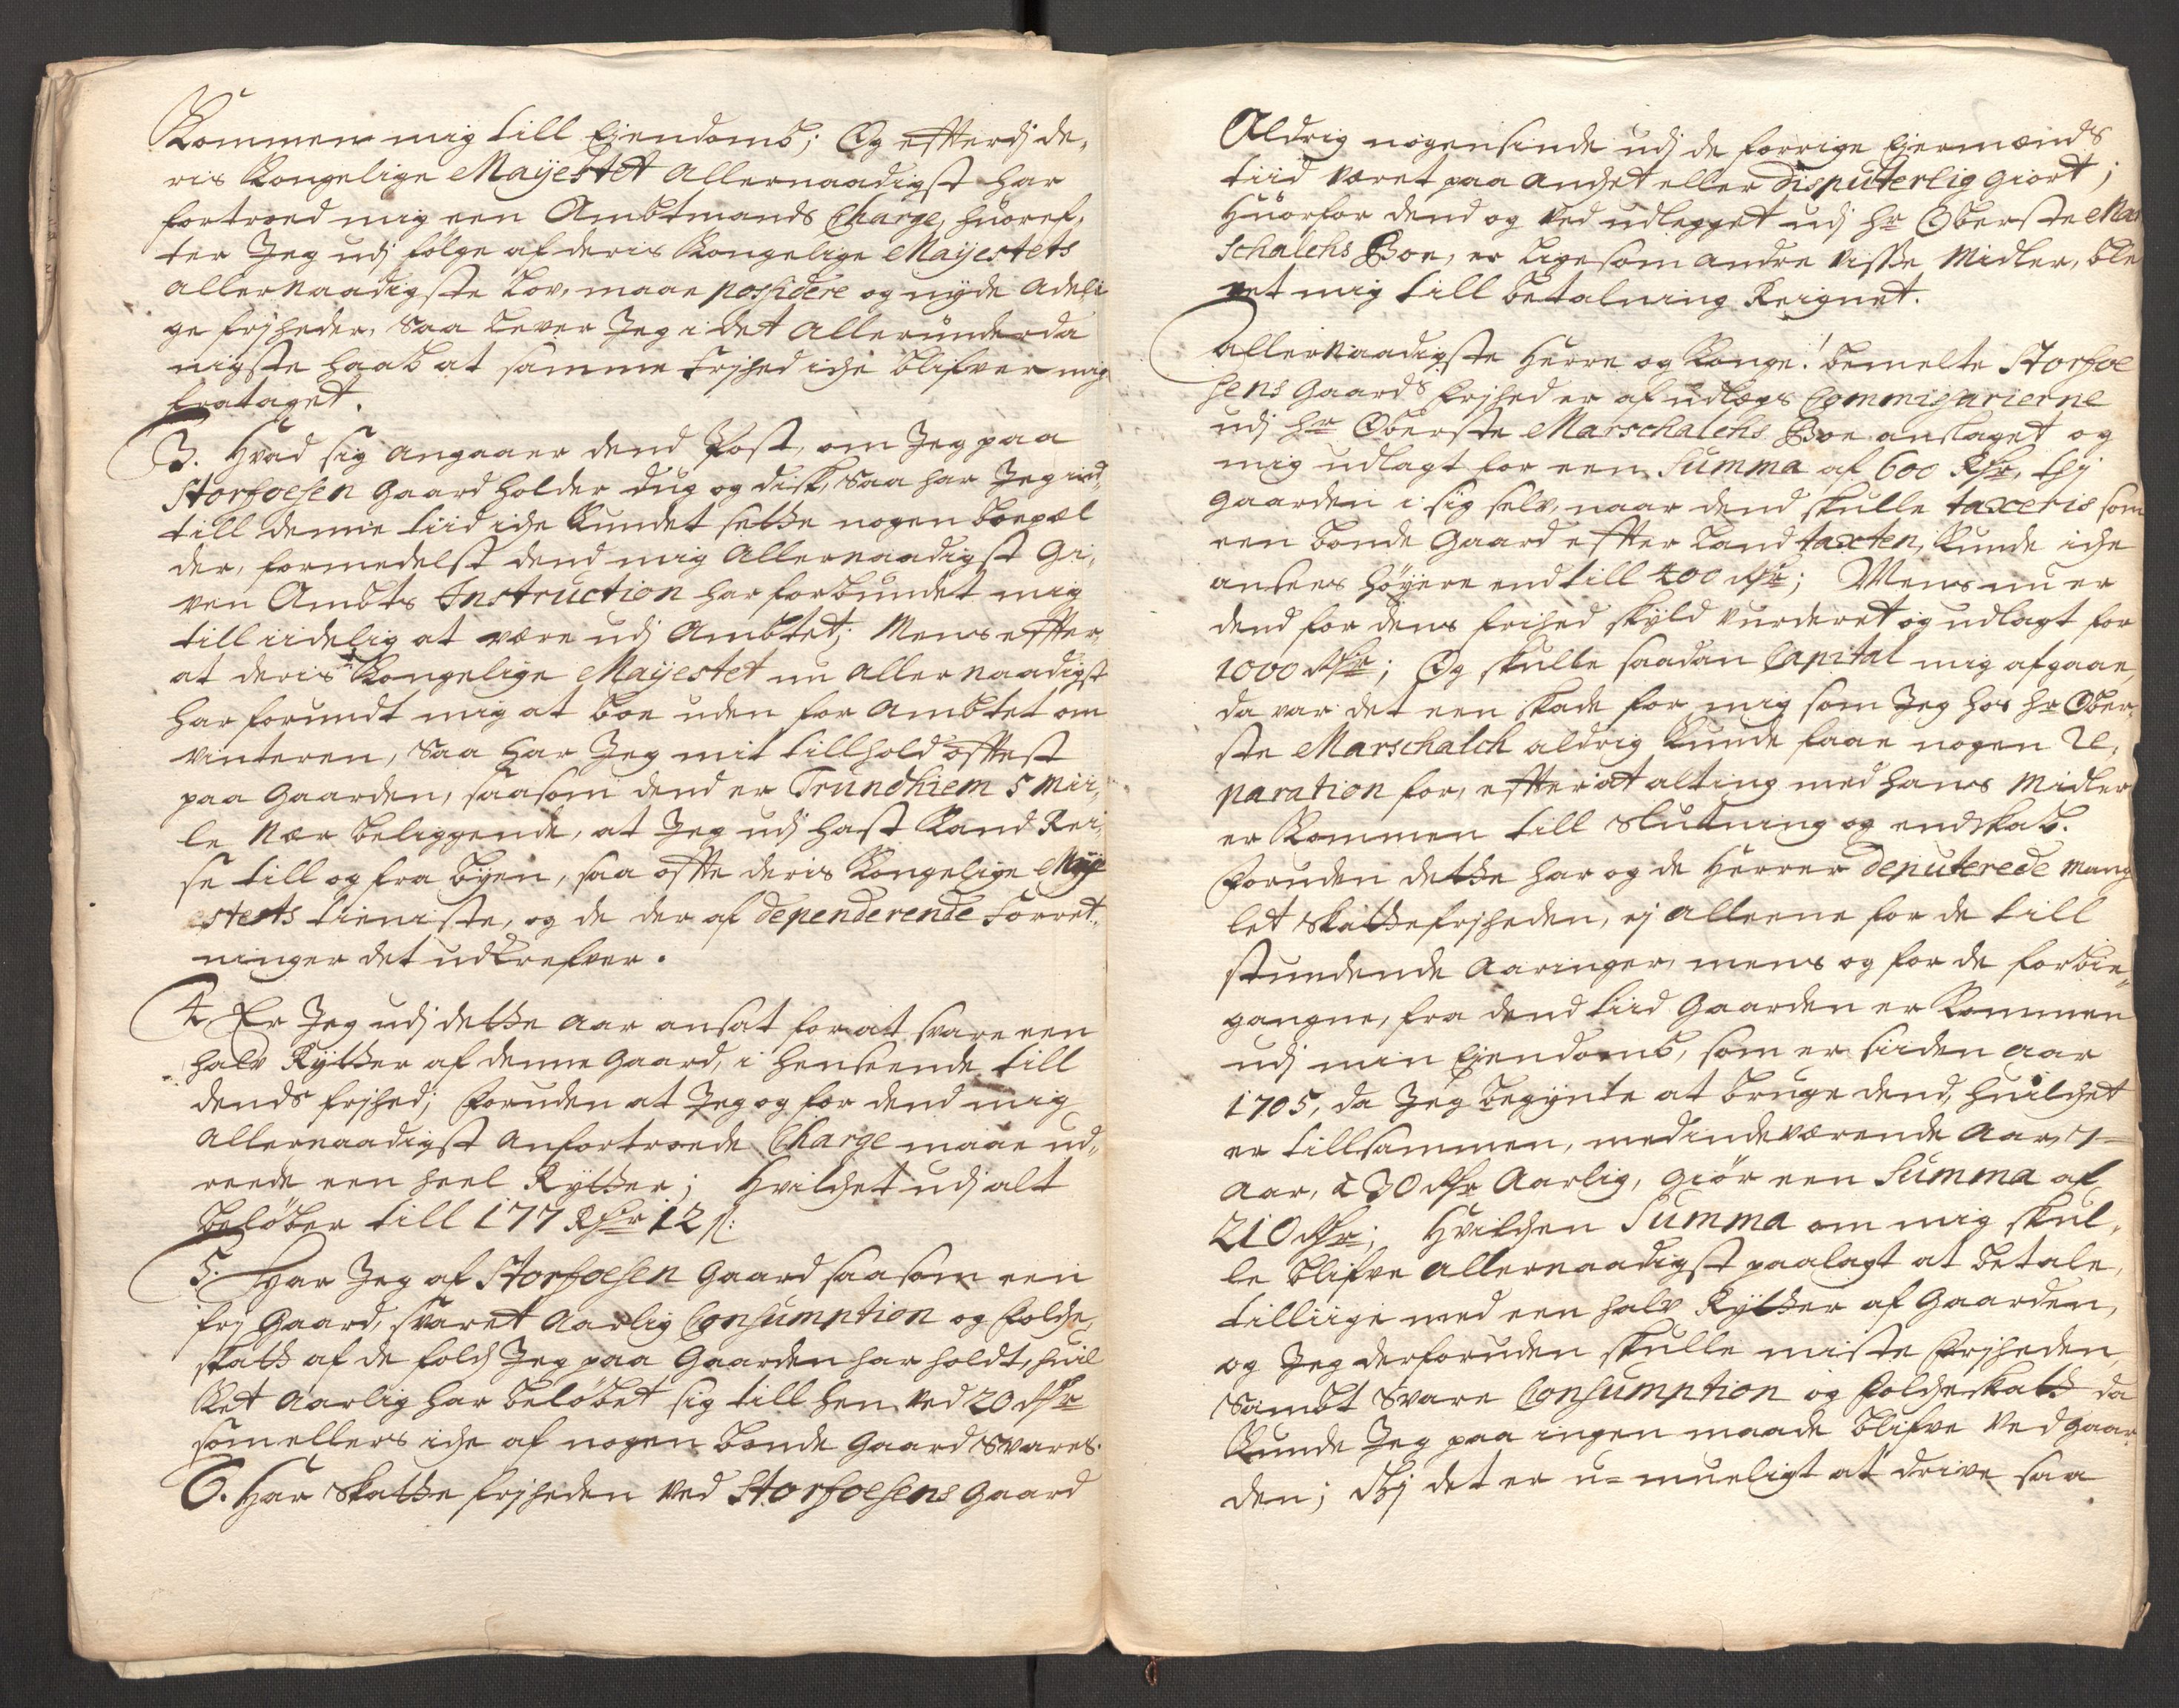 Kommen mig till Ejendomb; Og efftersj de,
ris Kongelige Mayestet Allernaadigst har
fortroed mig een Ambtmands Charge, huoref,
ter Jeg udj følge af deris Kongelige Mayestets
allernaadigste Lov, maae possidere og nyde adeli
ge frjheder, Saa lever Jeg i det allerunderda
nigste haab at samme Frjhed iche blifver mig
frataget.
3. Hvad sig angaaer dend Post, om Jeg paa
Storfosen Gaard holder dug og disk, Saa har Jeg ind
till denne tiid iche kundet sætte nogen boepæl
der, formedelst dend mig Allernaadigst Gi,
ven Ambts Instruction har forbundet mig
till iidelig at være udj Ambtet; Mens effter,
at deris Kongelige Mayestet nu allernaadigst
har forundt mig at boe uden for ambtet om
vinteren, Saa har Jeg mit tillhold offtest
paa Gaarden, saasom dend er Trundhiem 5 Mii,
le Nær beliggende, at Jeg udj hast kand Rei,
se till og fra byen, saa offte deris Kongelige May
estets tieniste, og de der af dependerende Forret,
ninger det udkræfver.
4 Er Jeg udj dette aar ansat for at svare een
halv Rytter af denne Gaard, i henseende till
dends frjhed; foruden at Jeg og for dend mig
allernaadigst anfortroede Charge maae ud,
reede een heel Rytter; Hvilchet udj alt
beløber till 177 Rdr 12 s:
5. Har Jeg af Storfosen Gaard saasom een
frj Gaard, svaret Aarlig Consumption og folche,
skatt af de folch Jeg paa Gaarden har holdt, huil
ket aarlig har beløbet sig till hen ved 20 Rdr
som ellers iche af nogen bonde Gaard svares.
6. Har Skatte frjheden ved Storfosens Gaard
Aldrig nogensinde udj de forrige Ejermænds
tiid været paa andet eller disputerlig giort;
Huorfor dend og ved udlegget udj Hr Oberste Mar
schalchs Boe, er ligesom andre visse Midler, ble
vet mig till betalning Reignet.
Allernaadigste Herre og Konge! bemelte Storfoe
sens Gaards frjhed er af udlægs Commissarierne
udj Hr Oberste Marschalchs Boe anslaget og
mig udlagt for een Summa af 600 Rdr, thj
Gaarden i sig selv, naar dend skulle taxeris som
een bonde Gaard effter Landtaxten, kunde iche
ansees høyere end till 400 Rdr; Mens nu er
dend for dens frihed skyld vurderet og udlagt for
1000 Rdr; Og skulle saadan Capital mig afgaae,
da var det een skade for mig som Jeg hos Hr Ober,
ste Marschalch aldrig kunde faae nogen Re,
paration for, effter at alting med hans Midler
er kommen till Slutning og endskab.
Foruden dette har og de Herrer deputerede mang
let Skattefrjheden, ej alleene for de till
stundende Aaringer, mens og for de forbie,
gangne, fra dend tiid Gaarden er kommen
udj min Ejendomb, som er siiden aar
1705, da Jeg begynte at bruge dend, huilchet
er tillsammen, med indeværende Aar, 7
aar, a 30 Rdr Aarlig, giør een Summa af
210 Rdr; Hvilchen Summa om mig skul,
le blifve allernaadigst paalagt at betale,
tilliige med een halv Rytter af Gaarden,
og Jeg derforuden skulle miste frjheden,
sambt svare Consumption og folcheskatt da
kunde Jeg paa ingen maade blifve ved Gaar
den; thj det er u-mueligt at drive saa